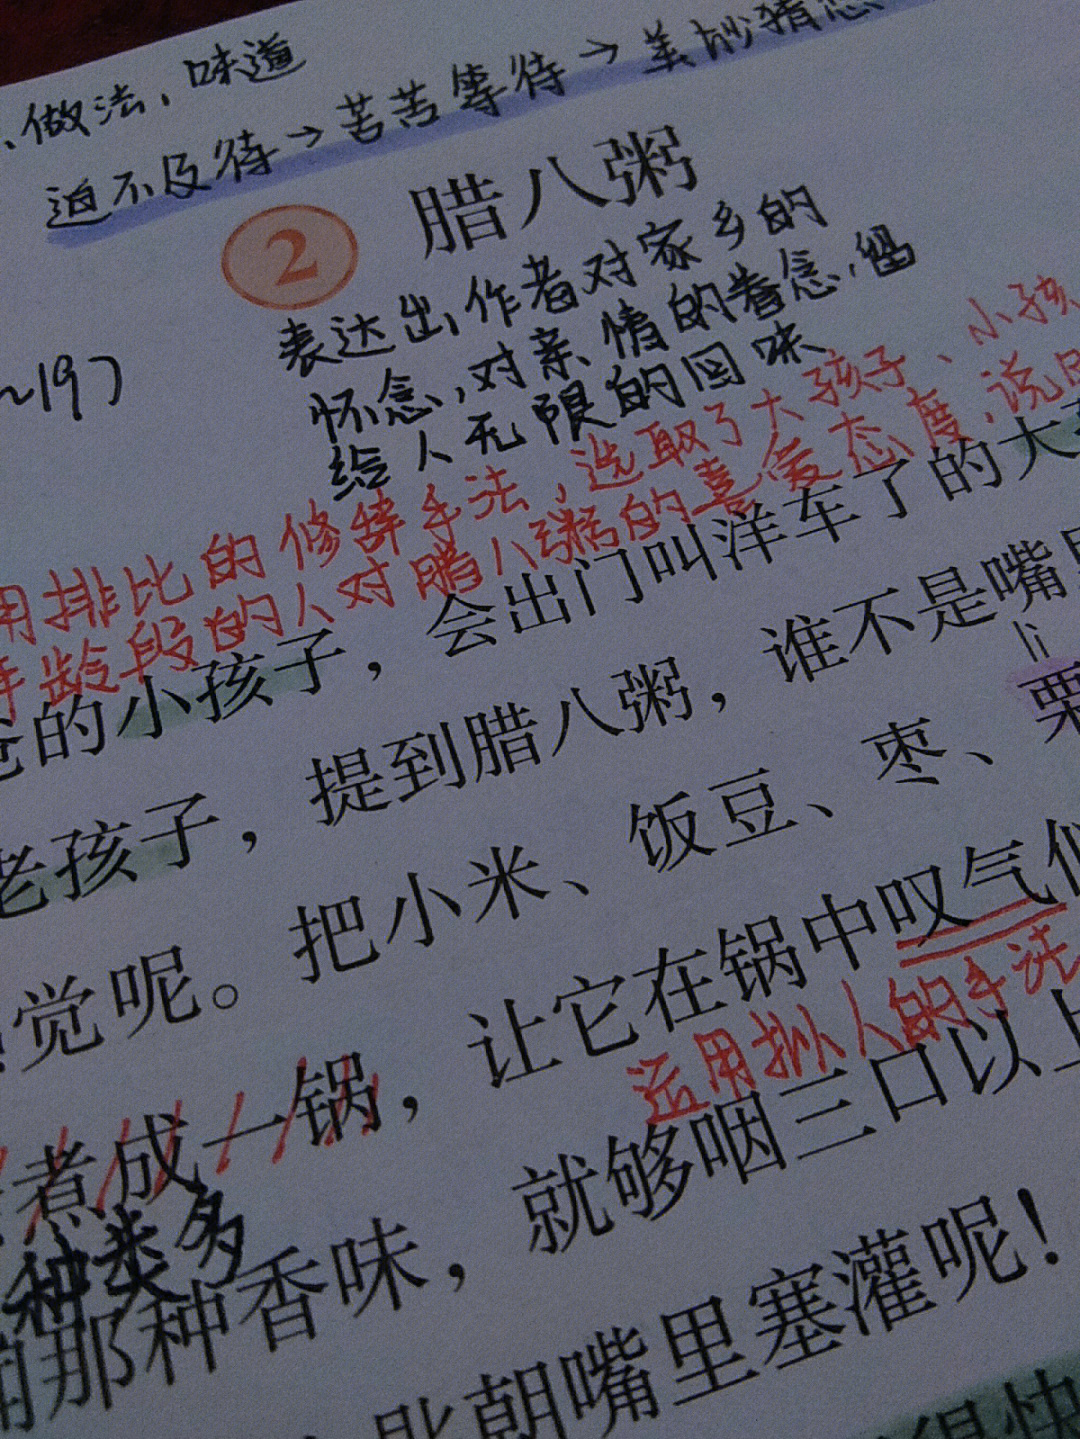 、做法、味道
迫不及待→苦苦等待→美妙猜想
2 腊八粥
表达出作者对家乡的
怀念,对亲情的眷念,留
给人无限的回味
~197
用排比的修辞手法,选取了大孩子、小孩
年龄段的人对腊八粥的喜爱态度,说明
的小孩子，会出门叫洋车了的大
老孩子，提到腊八粥，谁不是嘴里
li
觉呢。把小米、饭豆、枣、栗
煮成一锅，让它在锅中叹气似
运用拟人的手法
种类多
那种香味，就够咽三口以上
匙朝嘴里塞灌呢！
得快